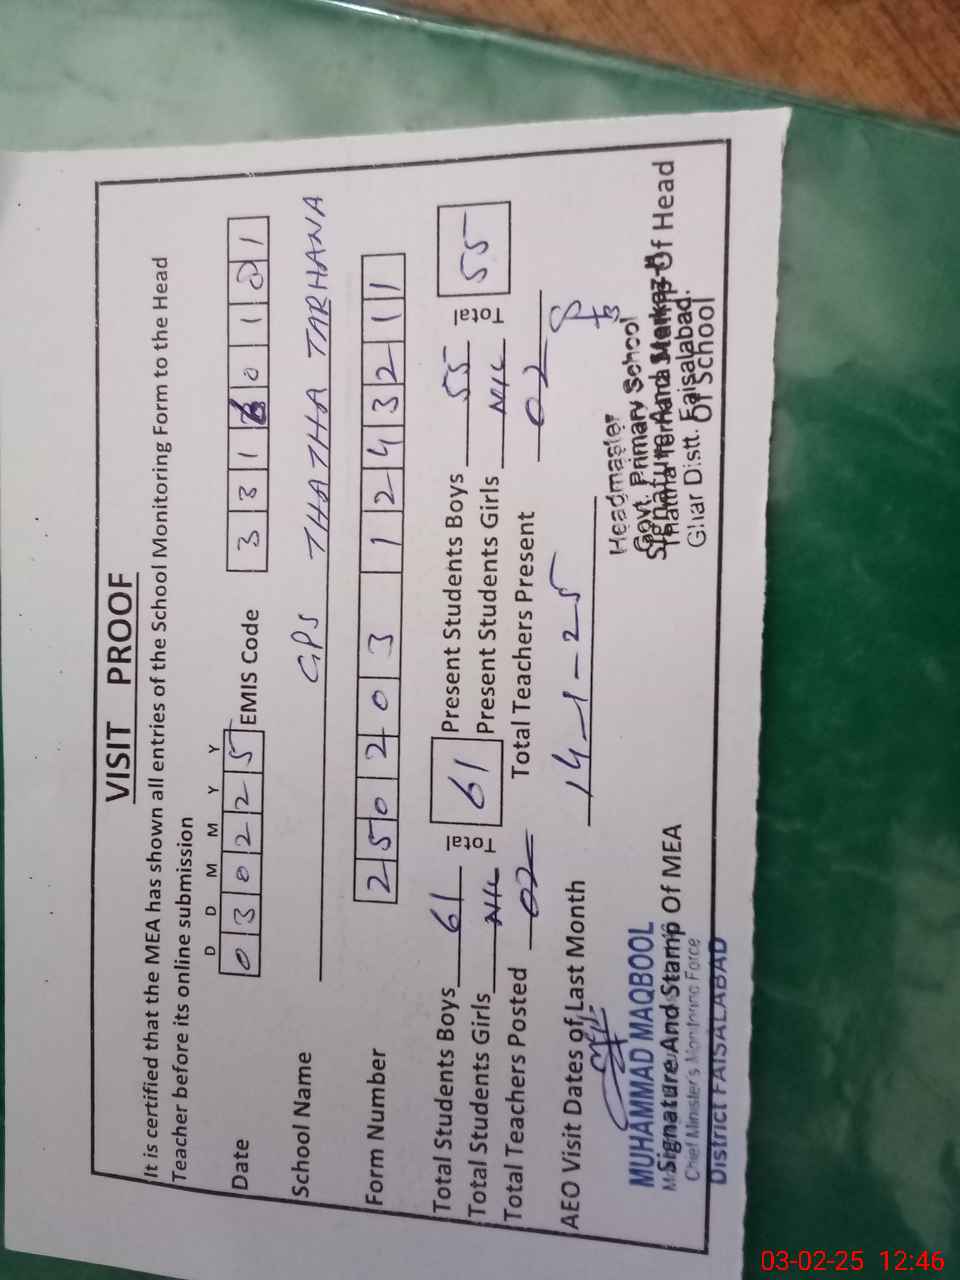 VISIT PROOF
It is certified that the MEA has shown all entries of the School Monitoring Form to the Head
Teacher before its online submission
D D M M Y Y
Date 0 3 0 2 2 5 EMIS Code 3 3 1 6 0 1 0 1
School Name GPS THATHA TARHANA
Form Number 2 5 0 2 0 3 1 2 4 3 2 1 1
Total Students Boys 61 Total 61 Present Students Boys 55 Total 55
Total Students Girls NIL Present Students Girls NIL
Total Teachers Posted 02 Total Teachers Present 02
AEO Visit Dates of Last Month 14-1-25
MUHAMMAD MAQBOOL
Signature And Stamp Of MEA
Chief Minister's Monitoring Force
District FAISALABAD
Headmaster
Govt. Primary School
Signature And Stamp Of Head
Of School
Distt. Faisalabad.
03-02-25 12:46